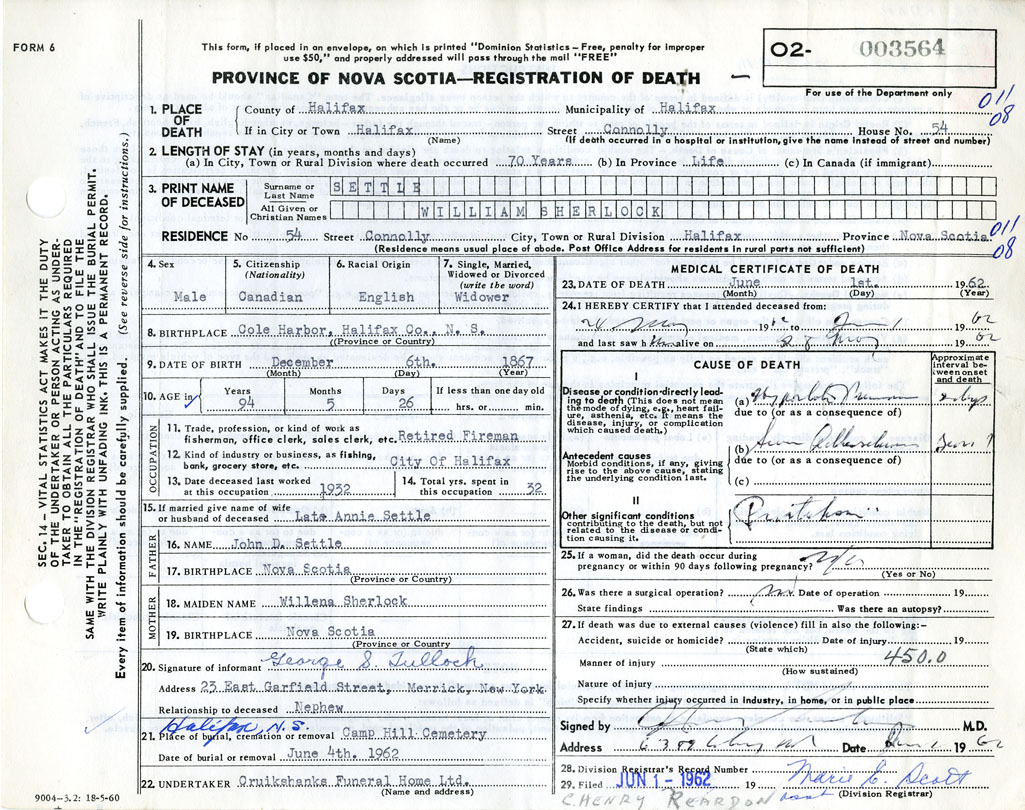 FORM 6
This form, if placed in an envelope, on which is printed "Dominion Statistics—Free, penalty for improper
use $50," and properly addressed will pass through the mail "FREE"
PROVINCE OF NOVA SCOTIA—REGISTRATION OF DEATH
O2- 003564
For use of the Department only
011
08
1. PLACE OF DEATH
County of Halifax Municipality of Halifax
If in City or Town Halifax (Name) Street Connolly House No. 54
(If death occurred in a hospital or institution, give the name instead of street and number)
2. LENGTH OF STAY (in years, months and days)
(a) In City, Town or Rural Division where death occurred 70 Years (b) In Province Life (c) In Canada (if immigrant)
3. PRINT NAME OF DECEASED
Surname or Last Name SETTLE
All Given or Christian Names WILLIAM SHERLOCK
RESIDENCE No 54 Street Connolly City, Town or Rural Division Halifax Province Nova Scotia
(Residence means usual place of abode. Post Office Address for residents in rural parts not sufficient)
011
08
4. Sex Male
5. Citizenship (Nationality) Canadian
6. Racial Origin English
7. Single, Married, Widowed or Divorced (write the word) Widower
8. BIRTHPLACE Cole Harbor, Halifax Co., N. S.
((Province or Country)
9. DATE OF BIRTH December 6th. 1867
(Month) (Day) (Year)
10. AGE in Years 94 Months 5 Days 26 If less than one day old hrs. or min.
OCCUPATION
11. Trade, profession, or kind of work as
fisherman, office clerk, sales clerk, etc. Retired Fireman
12. Kind of industry or business, as fishing,
bank, grocery store, etc. City Of Halifax
13. Date deceased last worked at this occupation 1932
14. Total yrs. spent in this occupation 32
15. If married give name of wife
or husband of deceased Late Annie Settle
FATHER
16. NAME John D. Settle
17. BIRTHPLACE Nova Scotia
(Province or Country)
MOTHER
18. MAIDEN NAME Willena Sherlock
19. BIRTHPLACE Nova Scotia
(Province or Country)
20. Signature of informant George S. Tulloch
Address 23 East Garfield Street, Merrick, New York
Relationship to deceased Nephew
Halifax, N.S.
21. Place of burial, cremation or removal Camp Hill Cemetery
Date of burial or removal June 4th. 1962
22. UNDERTAKER Cruikshanks Funeral Home Ltd.
(Name and address)
MEDICAL CERTIFICATE OF DEATH
23. DATE OF DEATH June 1st. 1962
(Month) (Day) (Year)
24. I HEREBY CERTIFY that I attended deceased from:
24 May 1962 to June 1 1962
and last saw h im alive on May 1962
CAUSE OF DEATH
Approximate interval between onset and death
I
Disease or condition directly leading to death (This does not mean the mode of dying, e.g., heart failure, asthenia, etc. It means the disease, injury, or complication which caused death.)
(a) days
due to (or as a consequence of)
Antecedent causes
Morbid conditions, if any, giving rise to the above cause, stating the underlying condition last.
(b)
due to (or as a consequence of)
(c)
II
Other significant conditions
contributing to the death, but not related to the disease or condition causing it.
25. If a woman, did the death occur during
pregnancy or within 90 days following pregnancy?
(Yes or No)
26. Was there a surgical operation? no Date of operation 19
State findings Was there an autopsy?
27. If death was due to external causes (violence) fill in also the following:-
Accident, suicide or homicide? Date of injury 19
(State which)
450.0
Manner of injury
(How sustained)
Nature of injury
Specify whether injury occurred in industry, in home, or in public place
Signed by M.D.
Address Date June 1 1962
28. Division Registrar's Record Number
29. Filed JUN 1 - 1962 19 Marie E. Scott
(Division Registrar)
C. HENRY REARDON asst
SEC. 14—VITAL STATISTICS ACT MAKES IT THE DUTY
OF THE UNDERTAKER OR PERSON ACTING AS UNDER-
TAKER TO OBTAIN ALL THE PARTICULARS REQUIRED
IN THE "REGISTRATION OF DEATH" AND TO FILE THE
SAME WITH THE DIVISION REGISTRAR WHO SHALL ISSUE THE BURIAL PERMIT.
WRITE PLAINLY WITH UNFADING INK. THIS IS A PERMANENT RECORD.
Every item of information should be carefully supplied. (See reverse side for instructions.)
9004-3.2: 18-5-60